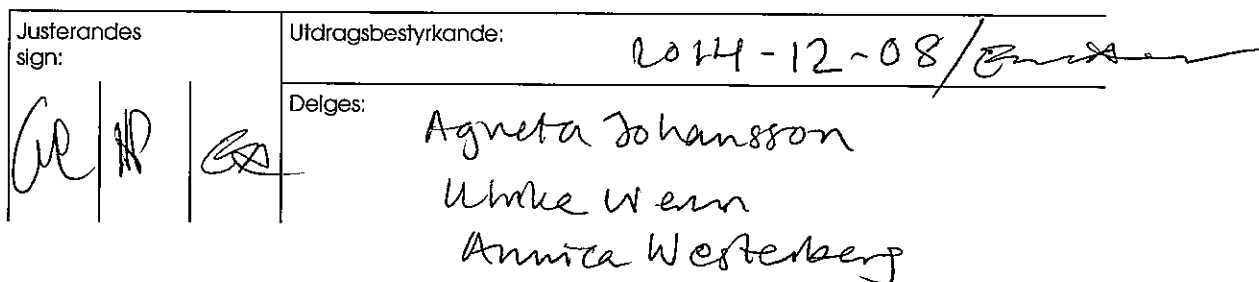 Justerandes
sign:
Utdragsbestyrkande:
2014-12-08/
Delges:
Agneta Johansson
Ulrike Wenn
Annica Westerberg